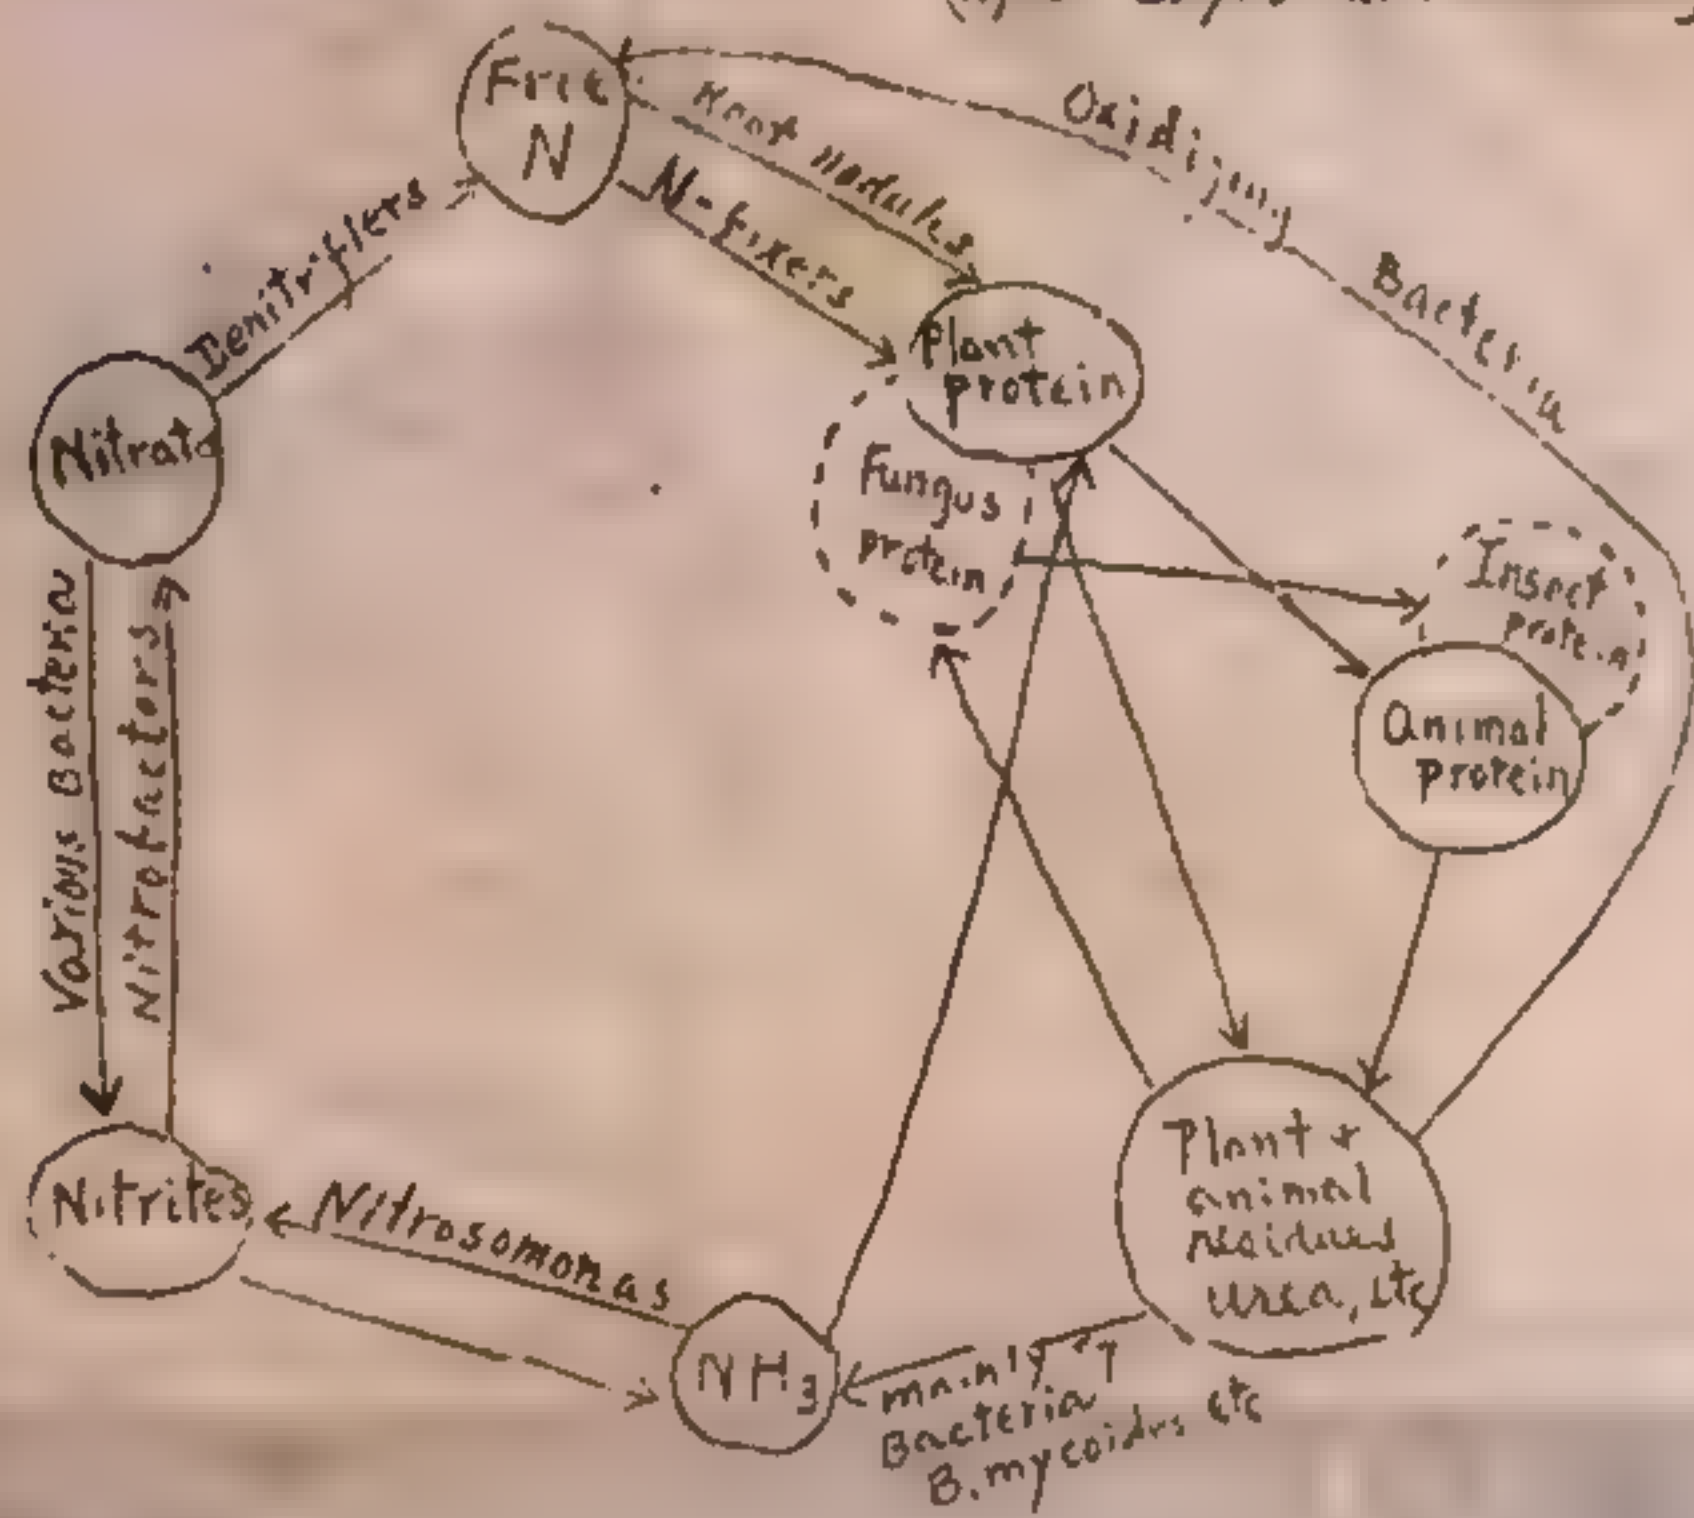 Free
N
Root nodules
N-fixers
Oxidizing Bacteria
Denitrifiers
Plant
protein
Fungus
protein
Insect
protein
Animal
protein
Nitrate
Various Bacteria
Nitrofactors
Nitrites
Nitrosomonas
NH3
Plant +
animal
residues
urea, etc
mainly
Bacteria
B. mycoides etc